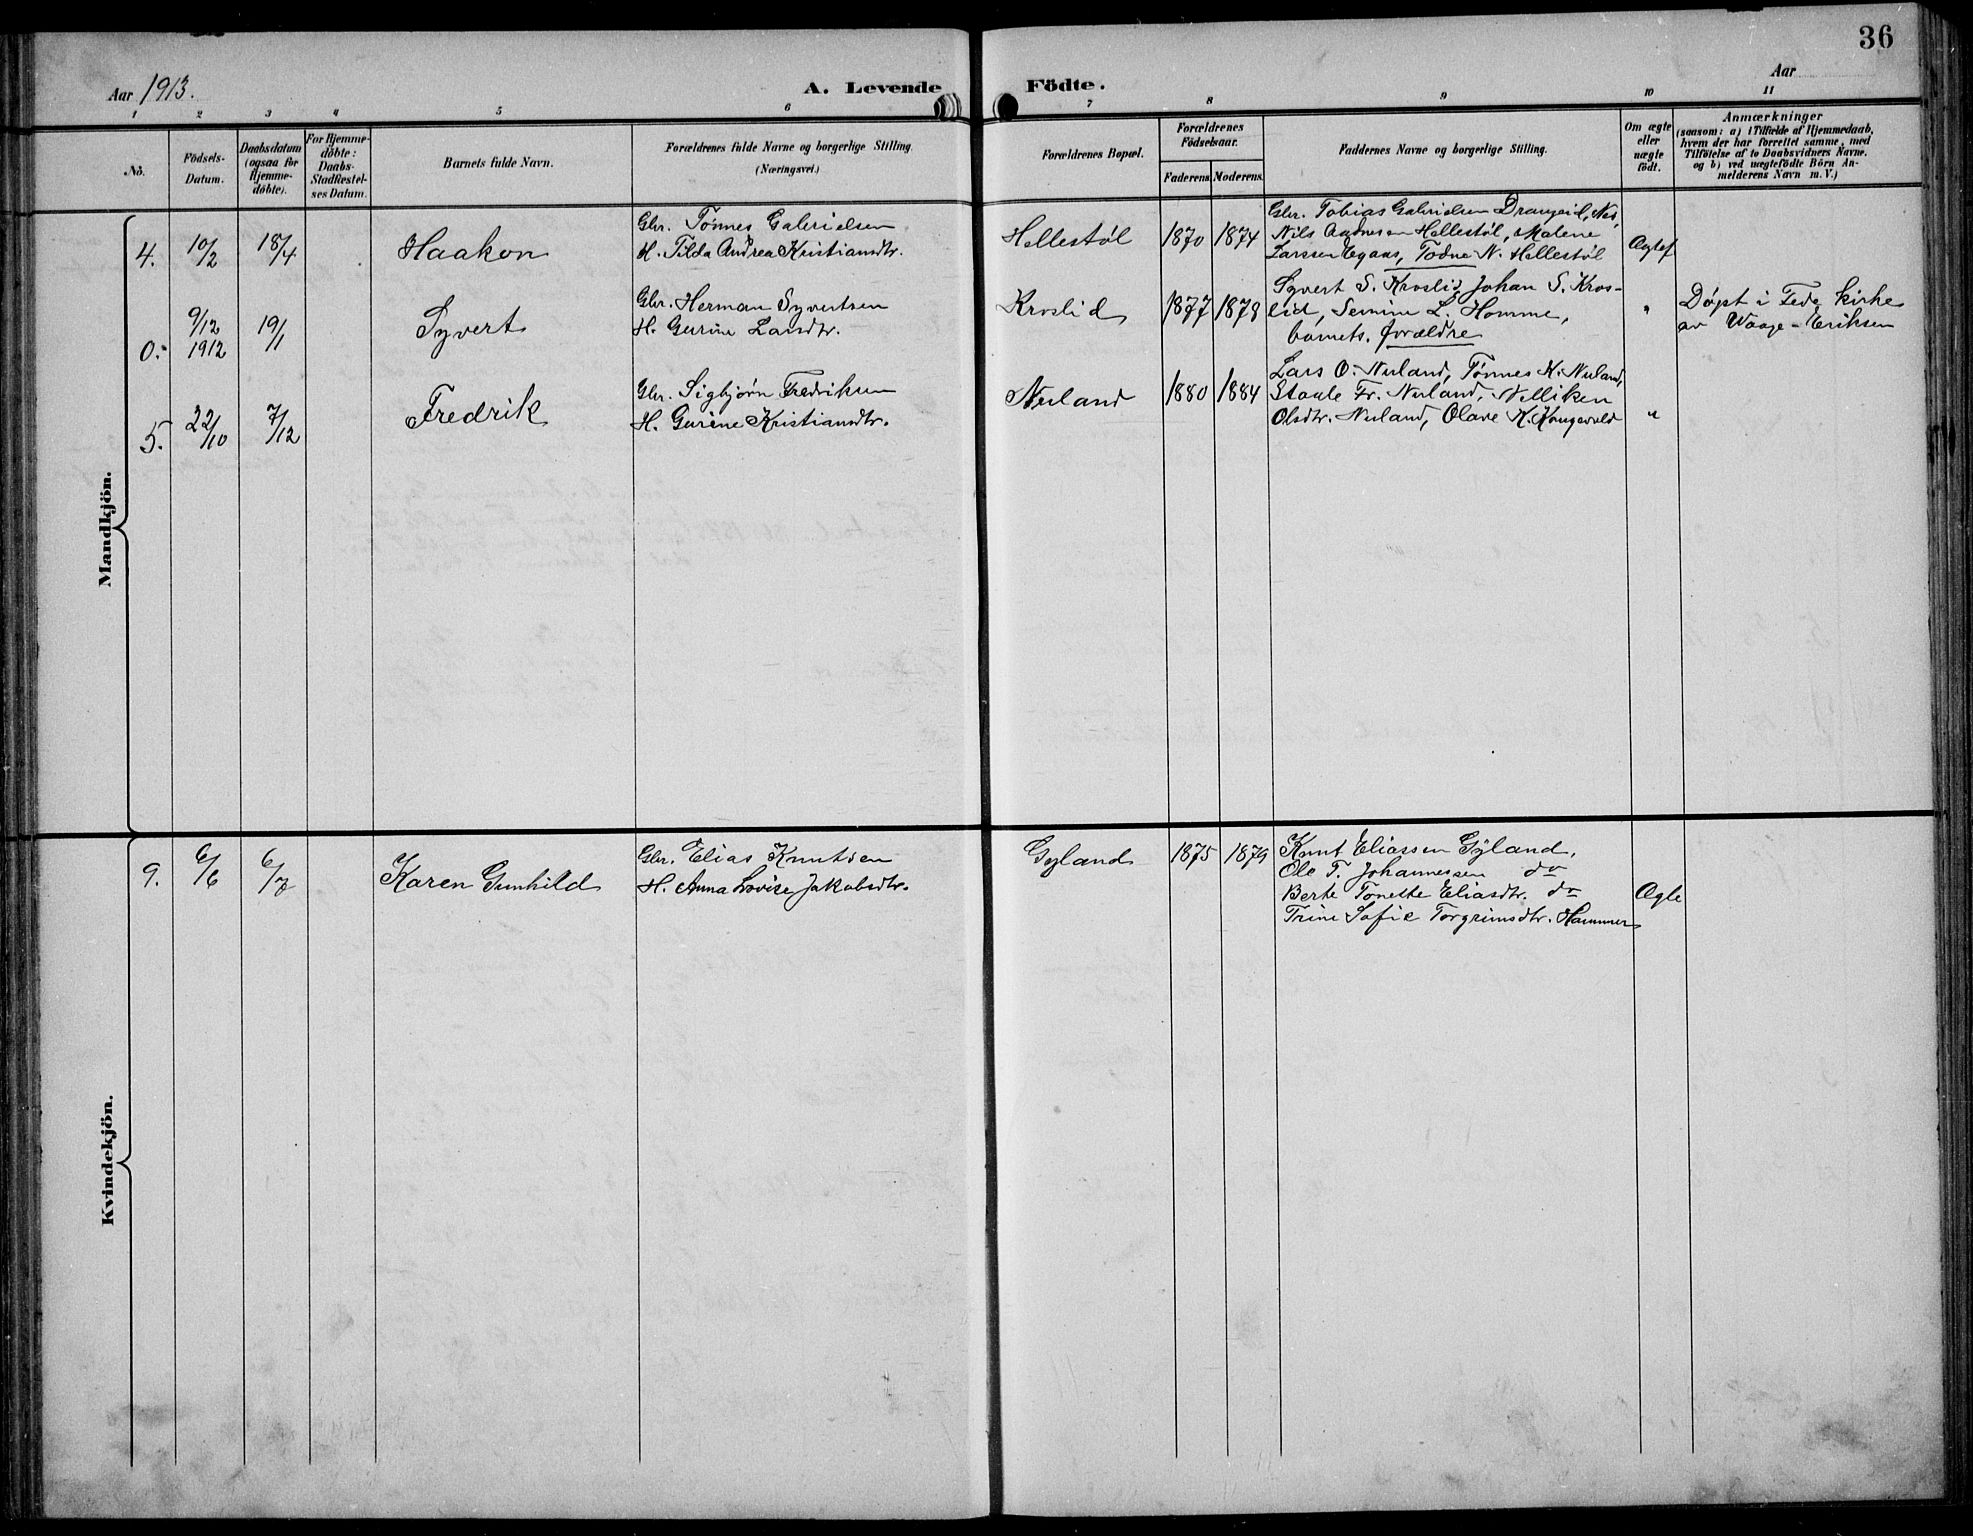 36
Aar 1913.
A. Levende
Födte.
Aar
1 2 3 4 5 6 7 8 9 10 11
No.
Födsels-
Datum.
Daabsdatum
(ogsaa for
Hjemme-
döbte).
For Hjemme-
döbte:
Daabs-
Stadfæstel-
ses Datum.
Barnets fulde Navn.
Forældrenes fulde Navne og borgerlige Stilling.
(Næringsvei.)
Forældrenes Bopæl.
Forældrenes
Födselsaar.
Faderens. Moderens.
Faddernes Navne og borgerlige Stilling.
Om ægte
eller
uægte
födt.
Anmærkninger
(saasom: a) i Tilfælde af Hjemmedaab,
hvem der har forrettet samme, med
Tilföielse af to Daabsvidners Navne.
og b) ved uægtefödte Börn An-
melderens Navn m. V.)
Mandkjön.
4. 10/2 18/4 Haakon
Gbr. Tönnes Gabrielsen
H. Tilda Andrea Kristiansdtr.
Hellestöl 1870 1874
Gbr. Tobias Gabrielsen Drangeid, Nes,
Nils Hellestöl, Malene
Larssen Egaas, Todne N. Hellestöl
Ægtef
0. 9/12 1912 19/1 Syvert
Gbr. Herman Syvertsen
H. Gurine Larsdtr.
Kroslid 1877 1878
Syvert S. Kroslid, Johan S. Kros-
lid, Semine L. Homme,
barnets forældre
" Døpt i Fede kirke
av Waage-Eriksen
5. 22/10 7/12 Fredrik
Gbr. Sigbjørn Fredriksen
H. Gurine Kristiansdtr.
Nuland 1880 1884
Lars O. Nuland, Tønnes K. Nuland,
Staale Fr. Nuland, Villiken
Olsdtr. Nuland, Olave K. Kongevold
"
Kvindekjön.
9. 6/6 6/7 Karen Gunhild
Gbr. Elias Knutsen
H. Anna Lovise Jakobsdtr.
Gyland 1875 1879
Knut Eliassen Gyland,
Ole T. Johannessen do
Berte Tonette Eliasdtr. do
Trine Sofie Torgrimsdtr. Hammer
Ægte